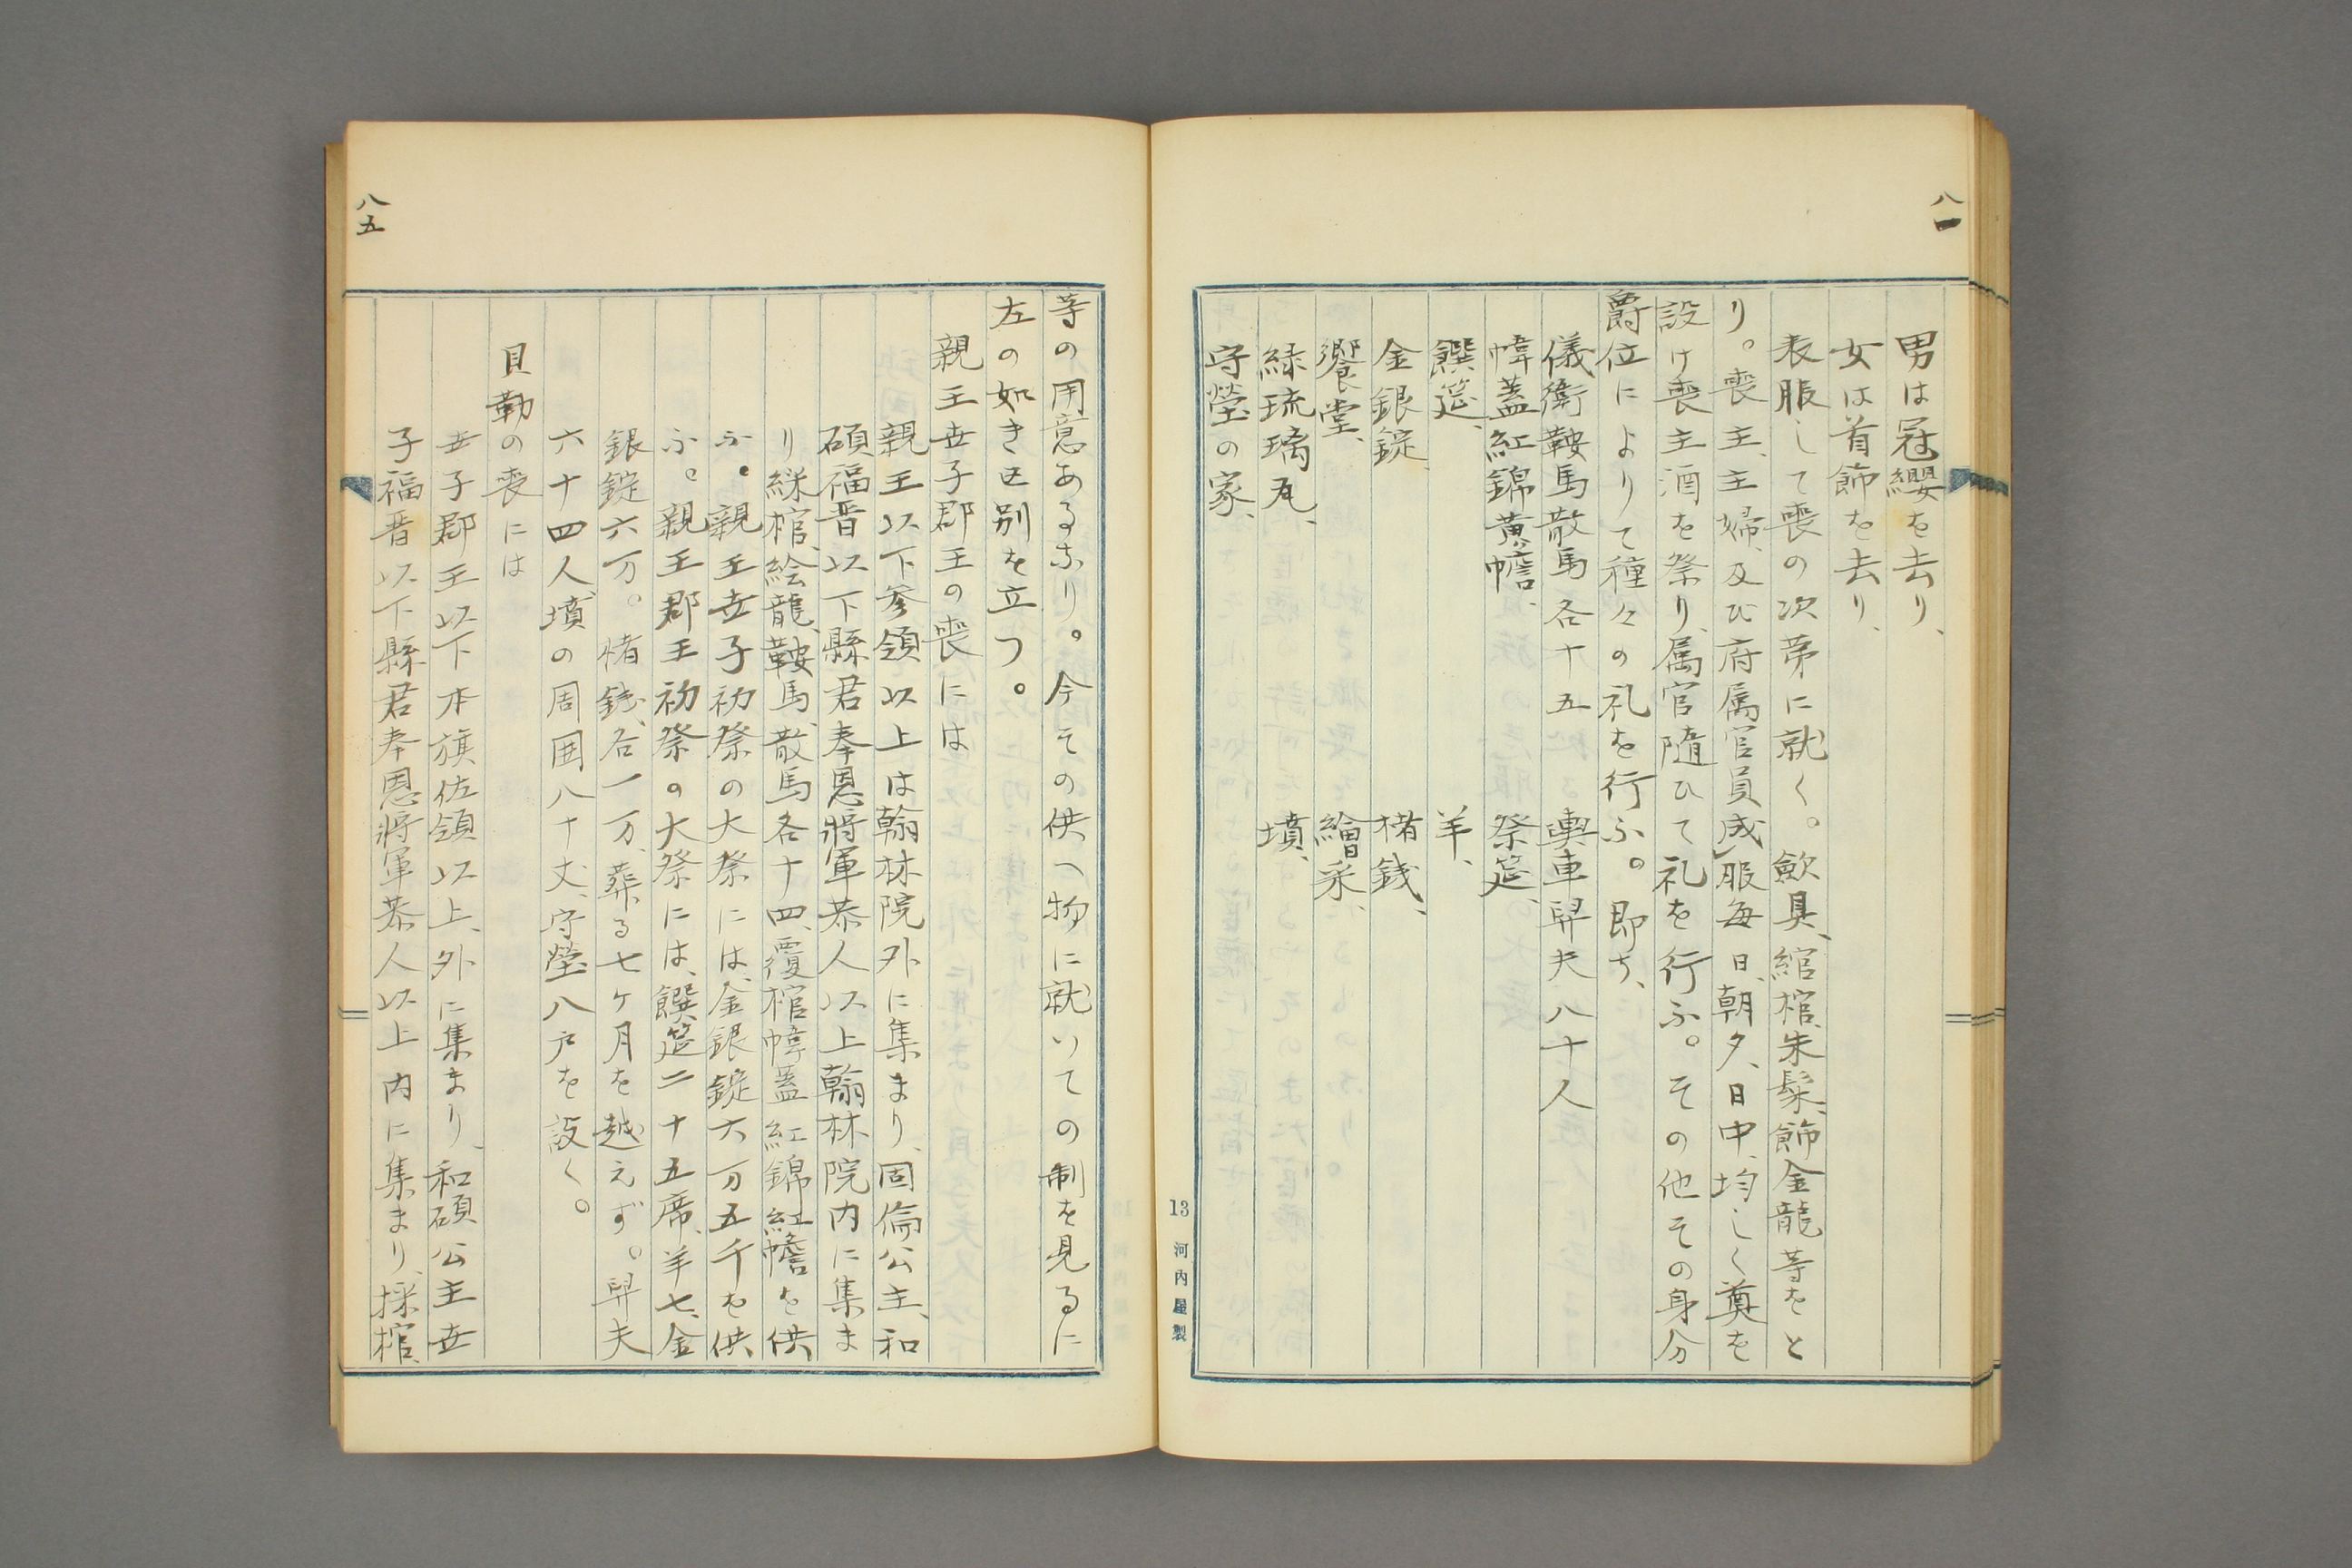 八一
男は冠纓を去り、
女は首飾を去り、
表服して喪の次第に就く。歛具、綰棺、朱髹、飾金龍等をと
り。喪主、主婦、及び府属官員成服毎日、朝夕、日中、均しく奠を
設け喪主酒を祭り、属官隨ひて礼を行ふ。その他その身分
爵位によりて種々の礼を行ふ。即ち、
儀衛鞍馬散馬各十五 輿車舁夫八十人
幃蓋紅錦黄幨、 祭筵、
饌筵、 羊、
金銀錠、 楮銭、
饗堂、 繪采、
緑琉璃瓦、 墳、
守塋の家、
13 河内屋製
等の用意あるなり。今その供へ物に就いての制を見るに
左の如き区別を立つ。
親王世子郡王の喪には
親王以下参領以上は翰林院外に集まり、固倫公主、和
碩福晋以下縣君奉恩將軍恭人以上翰林院内に集ま
り綵棺、絵龍、鞍馬、散馬各十四、覆棺幃蓋紅錦紅幨を供
ふ。親王世子初祭の大祭には、金銀錠六万五千を供
ふ。親王郡王初祭の大祭には、饌筵二十五席、羊七、金
銀錠六万。楮銭、各一万、葬る七ヶ月を越えず。舁夫
六十四人墳の周囲八十丈、守塋八戸を設く。
貝勒の喪には
世子郡王以下本旗佐領以上、外に集まり、和碩公主世
子福晋以下縣君奉恩將軍恭人以上内に集まり、採棺、
八五